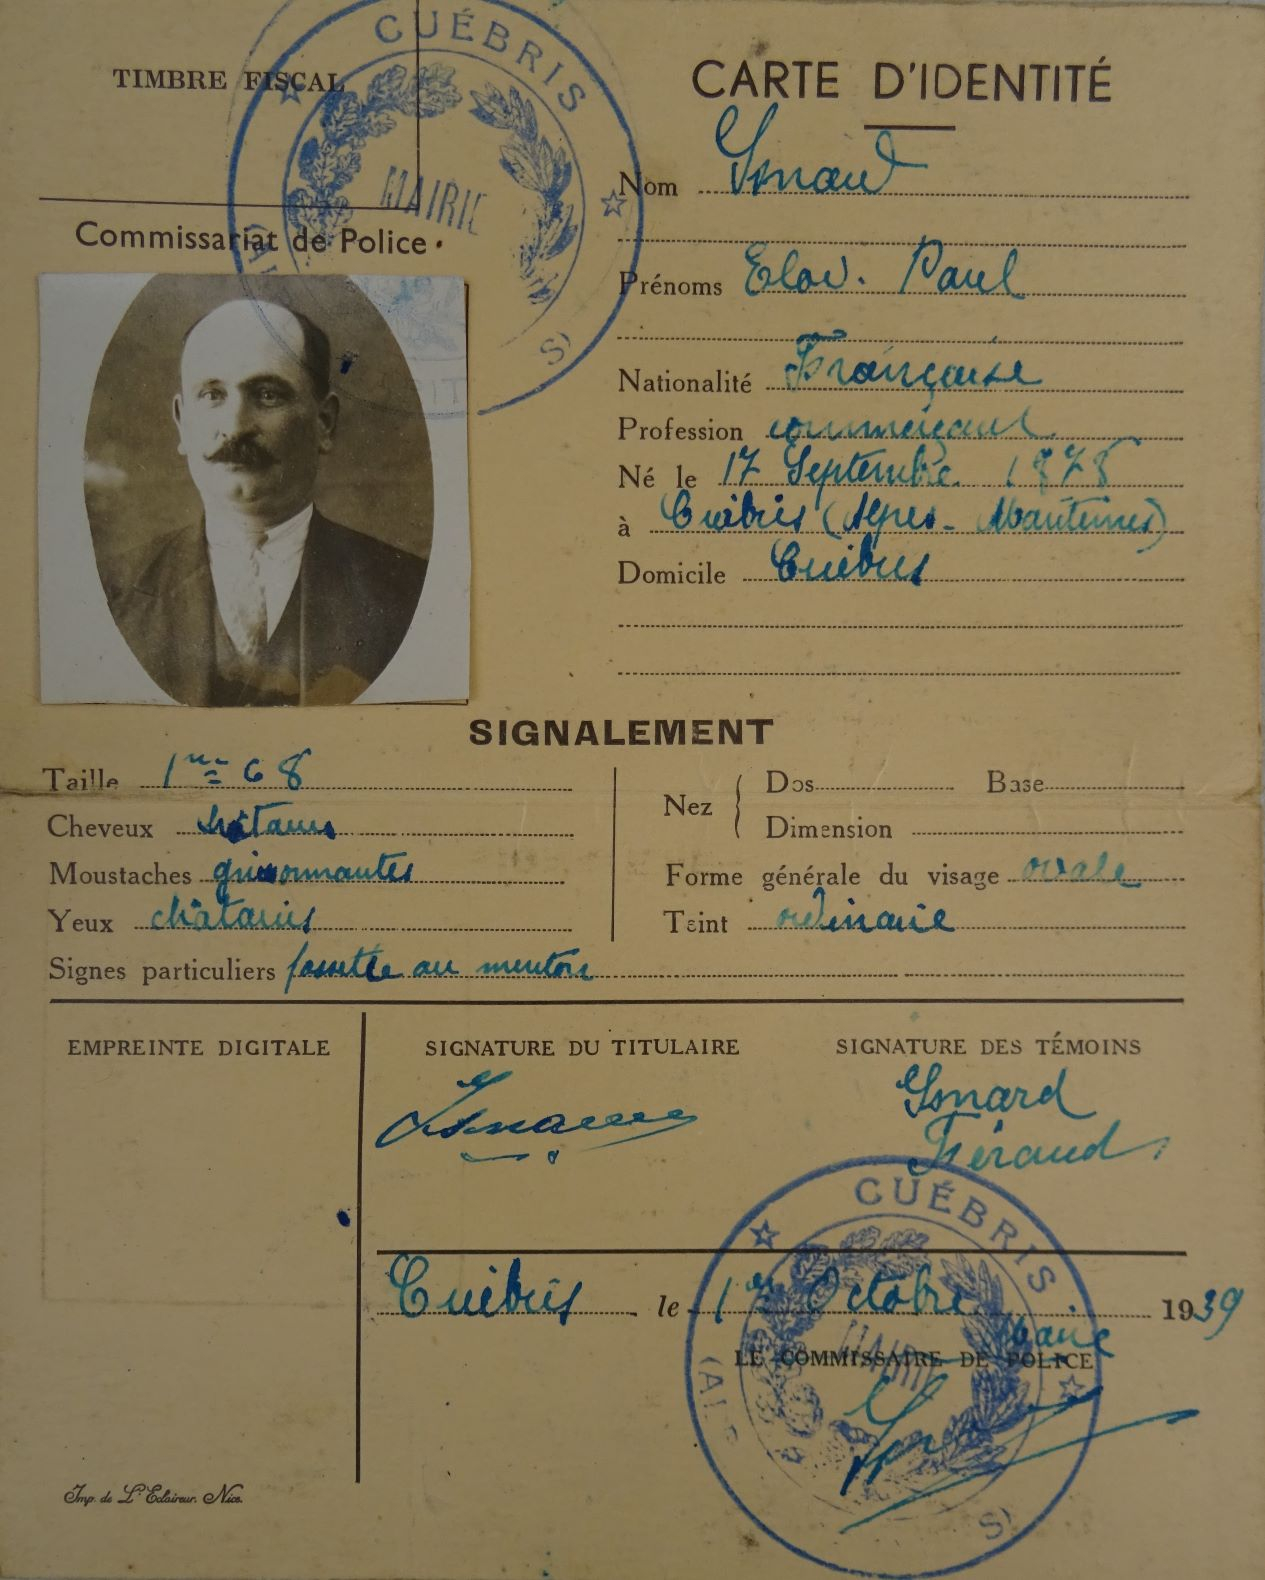 CUÉBRIS
MAIRIE
TIMBRE FISCAL
Commissariat de Police
CARTE D'IDENTITÉ
Nom Isnard
Prénoms Paul
Nationalité Française
Profession commerçant
Né le 17 Septembre 1878
à Cuébris (Alpes-Maritimes)
Domicile Cuébris
SIGNALEMENT
Taille 1m 68
Cheveux châtains
Moustaches grisonnantes
Yeux châtains
Signes particuliers fossette au menton
Nez Dos Base
Dimension
Forme générale du visage ovale
Teint ordinaire
EMPREINTE DIGITALE
SIGNATURE DU TITULAIRE
Isnard
SIGNATURE DES TÉMOINS
Isnard
Féraud
Cuébris le 1er Octobre 1939
Maire
LE COMMISSAIRE DE POLICE
CUÉBRIS
MAIRIE
Imp. de L'Eclaireur. Nice.